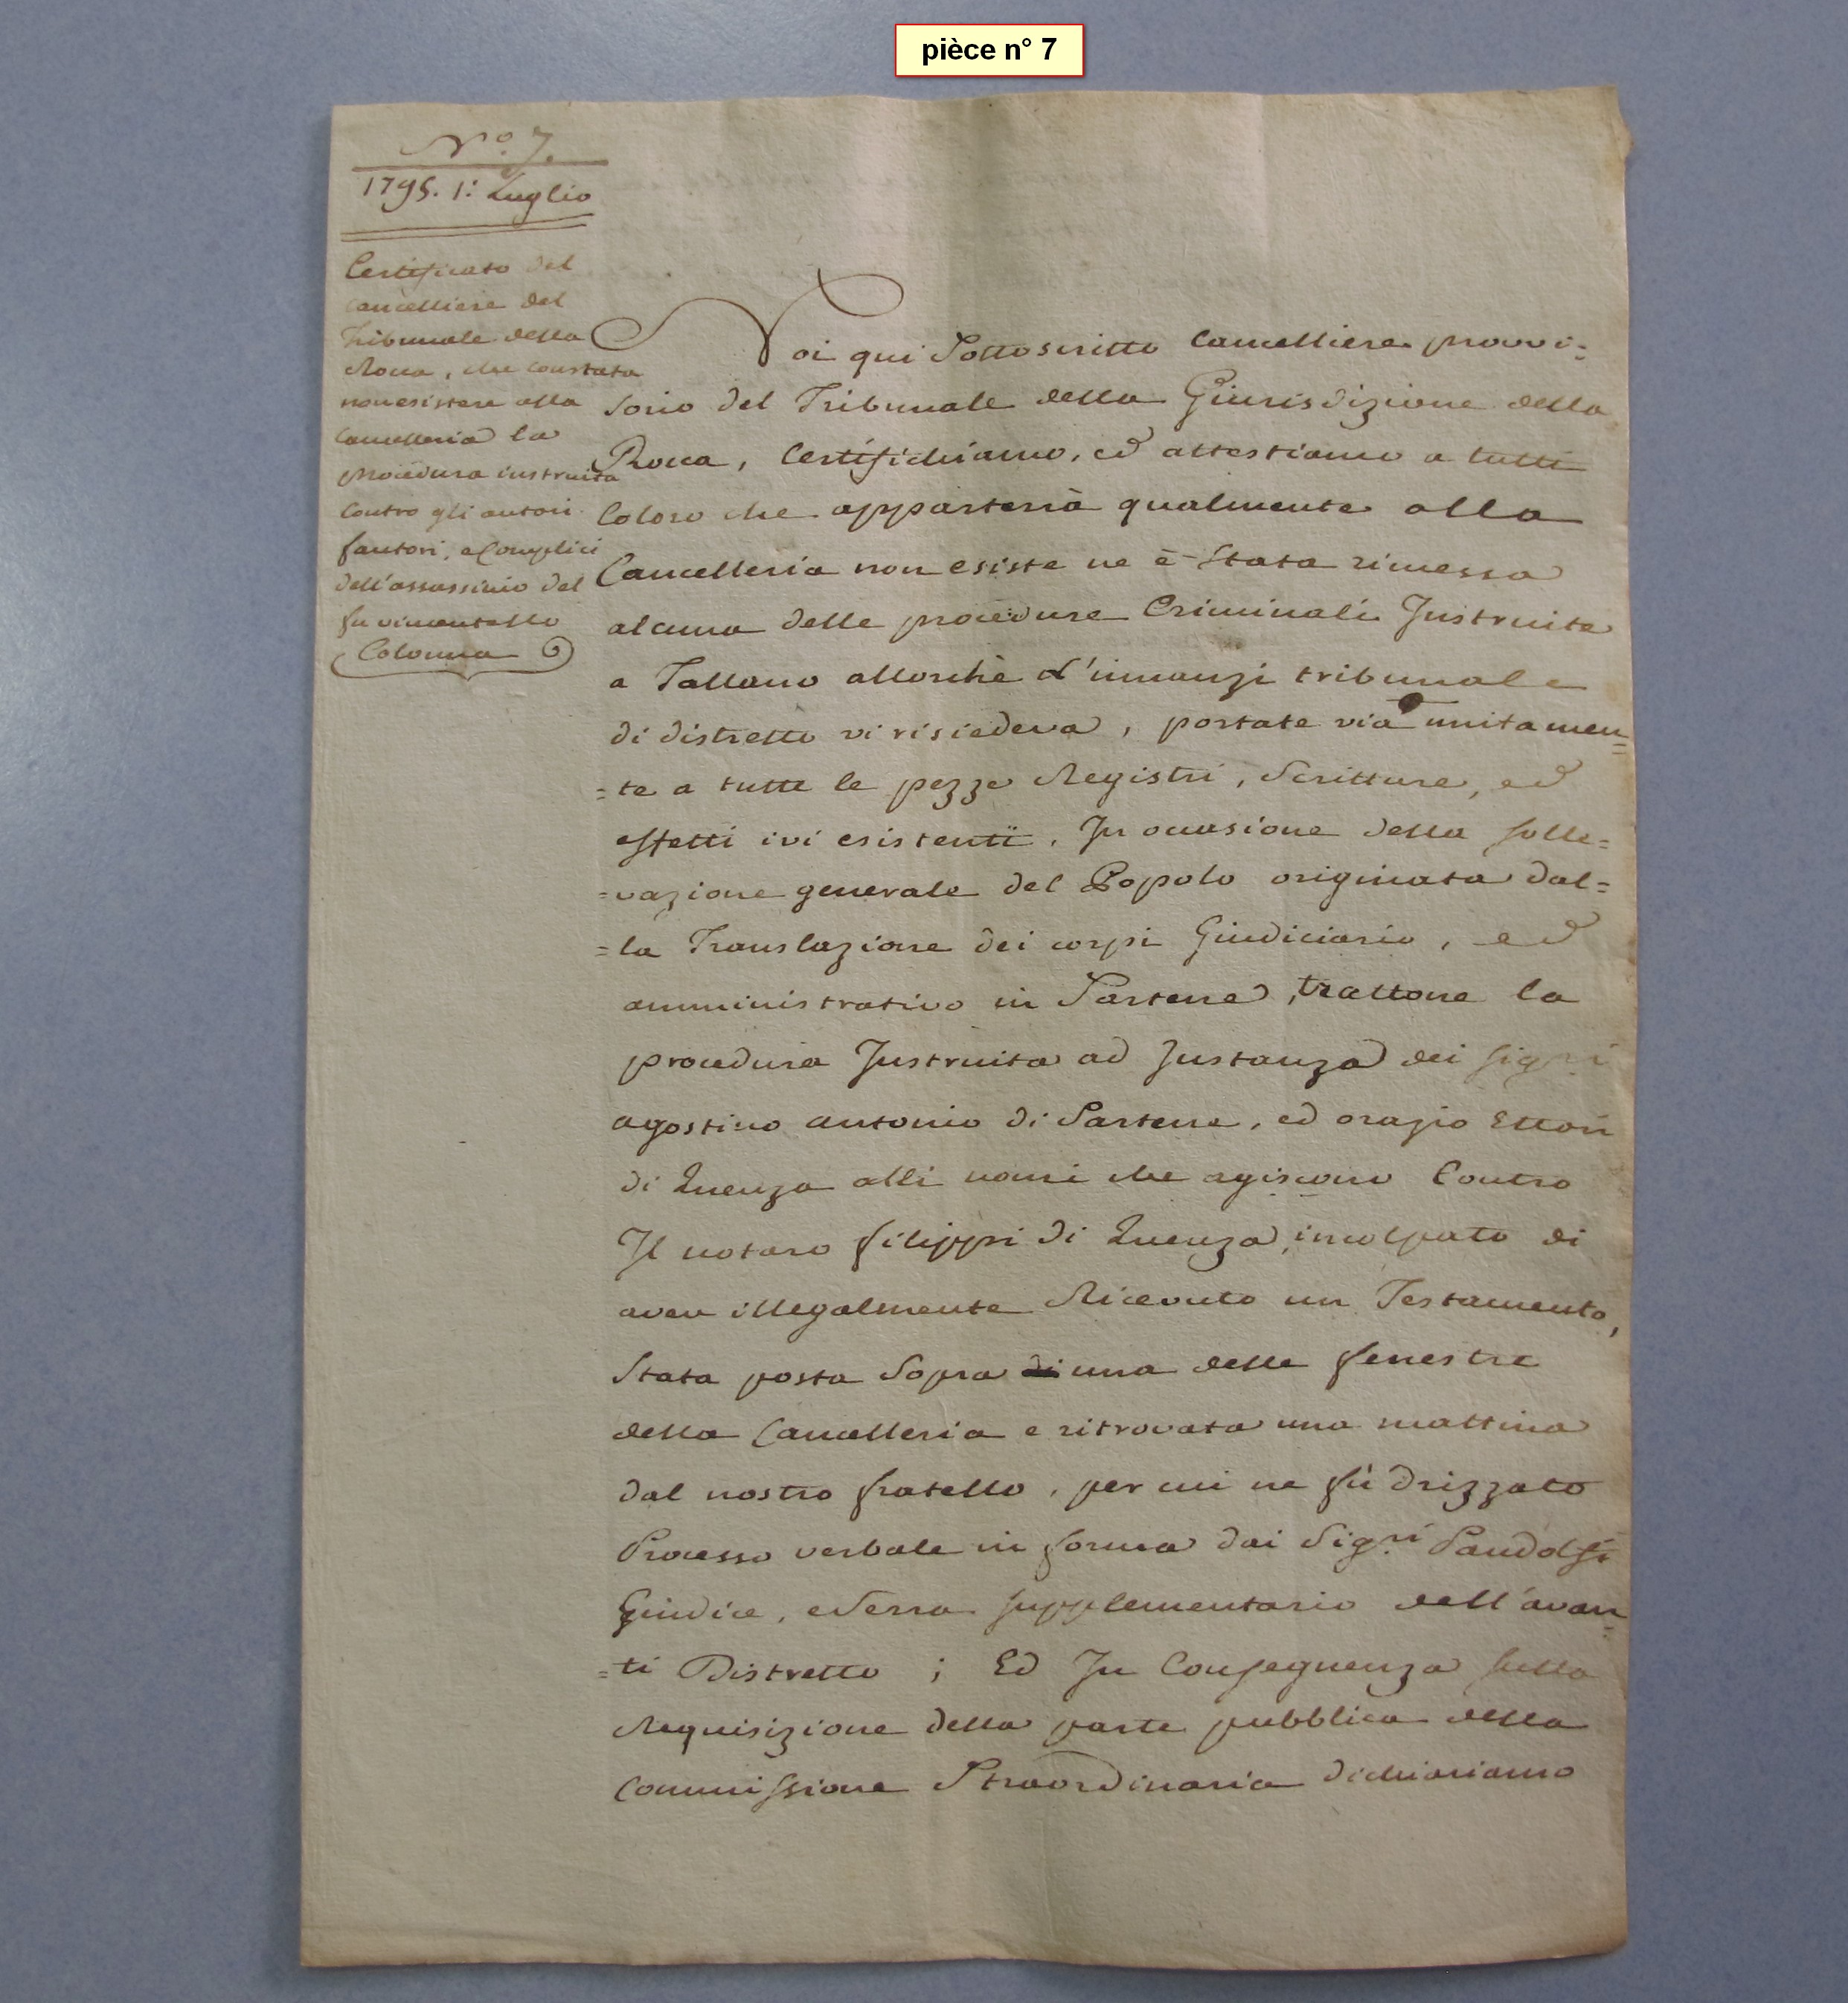 pièce n° 7
N.o 7.
1795. 1: Luglio
Certificato del
Cancelliere del
Tribunale della
Rocca, che constata
non esistere alla
Cancelleria la
procedura instruita
Contro gli autori
fautori, e Complici
dell'assassinio del
fu vincentello
Colonna
Noi qui Sottoscritto Cancelliere provvi=
sorio del Tribunale della Giurisdizione della
Rocca, Certifichiamo, ed attestiamo a tutti
Coloro che apparterrà qualmente alla
Cancelleria non esiste ne è Stata rimessa
alcuna delle procedure Criminali Instruite
a Tallano allorchè l'innanzi tribunale
di distretto vi risiedeva, portate via unitamen=
=te a tutte le pezze Registri, Scritture, ed
effetti ivi esistenti. In occasione della solle=
=vazione generale del Popolo originata dal=
=la Translazione dei corpi Giudiciario, ed
amministrativo in Sartene, trattone la
procedura Instruita ad Instanza dei sig.ri
agostino antonio di Sartene, ed orazio Ettori
di Quenza alli nomi che agiscono Contro
Il notaro filippi di Quenza, incolpato di
aver illegalmente Ricevuto un Testamento,
Stata posta Sopra di una delle fenestre
della Cancelleria e ritrovata una mattina
dal nostro fratello, per cui ne fù drizzato
Processo verbale in forma dai Sig.ri Pandolfi
Giudice, e Serra supplementario dell'avan
=ti Distretto; Ed In Conseguenza sulla
Requisizione della parte pubblica della
Commissione Straordinaria dichiariamo